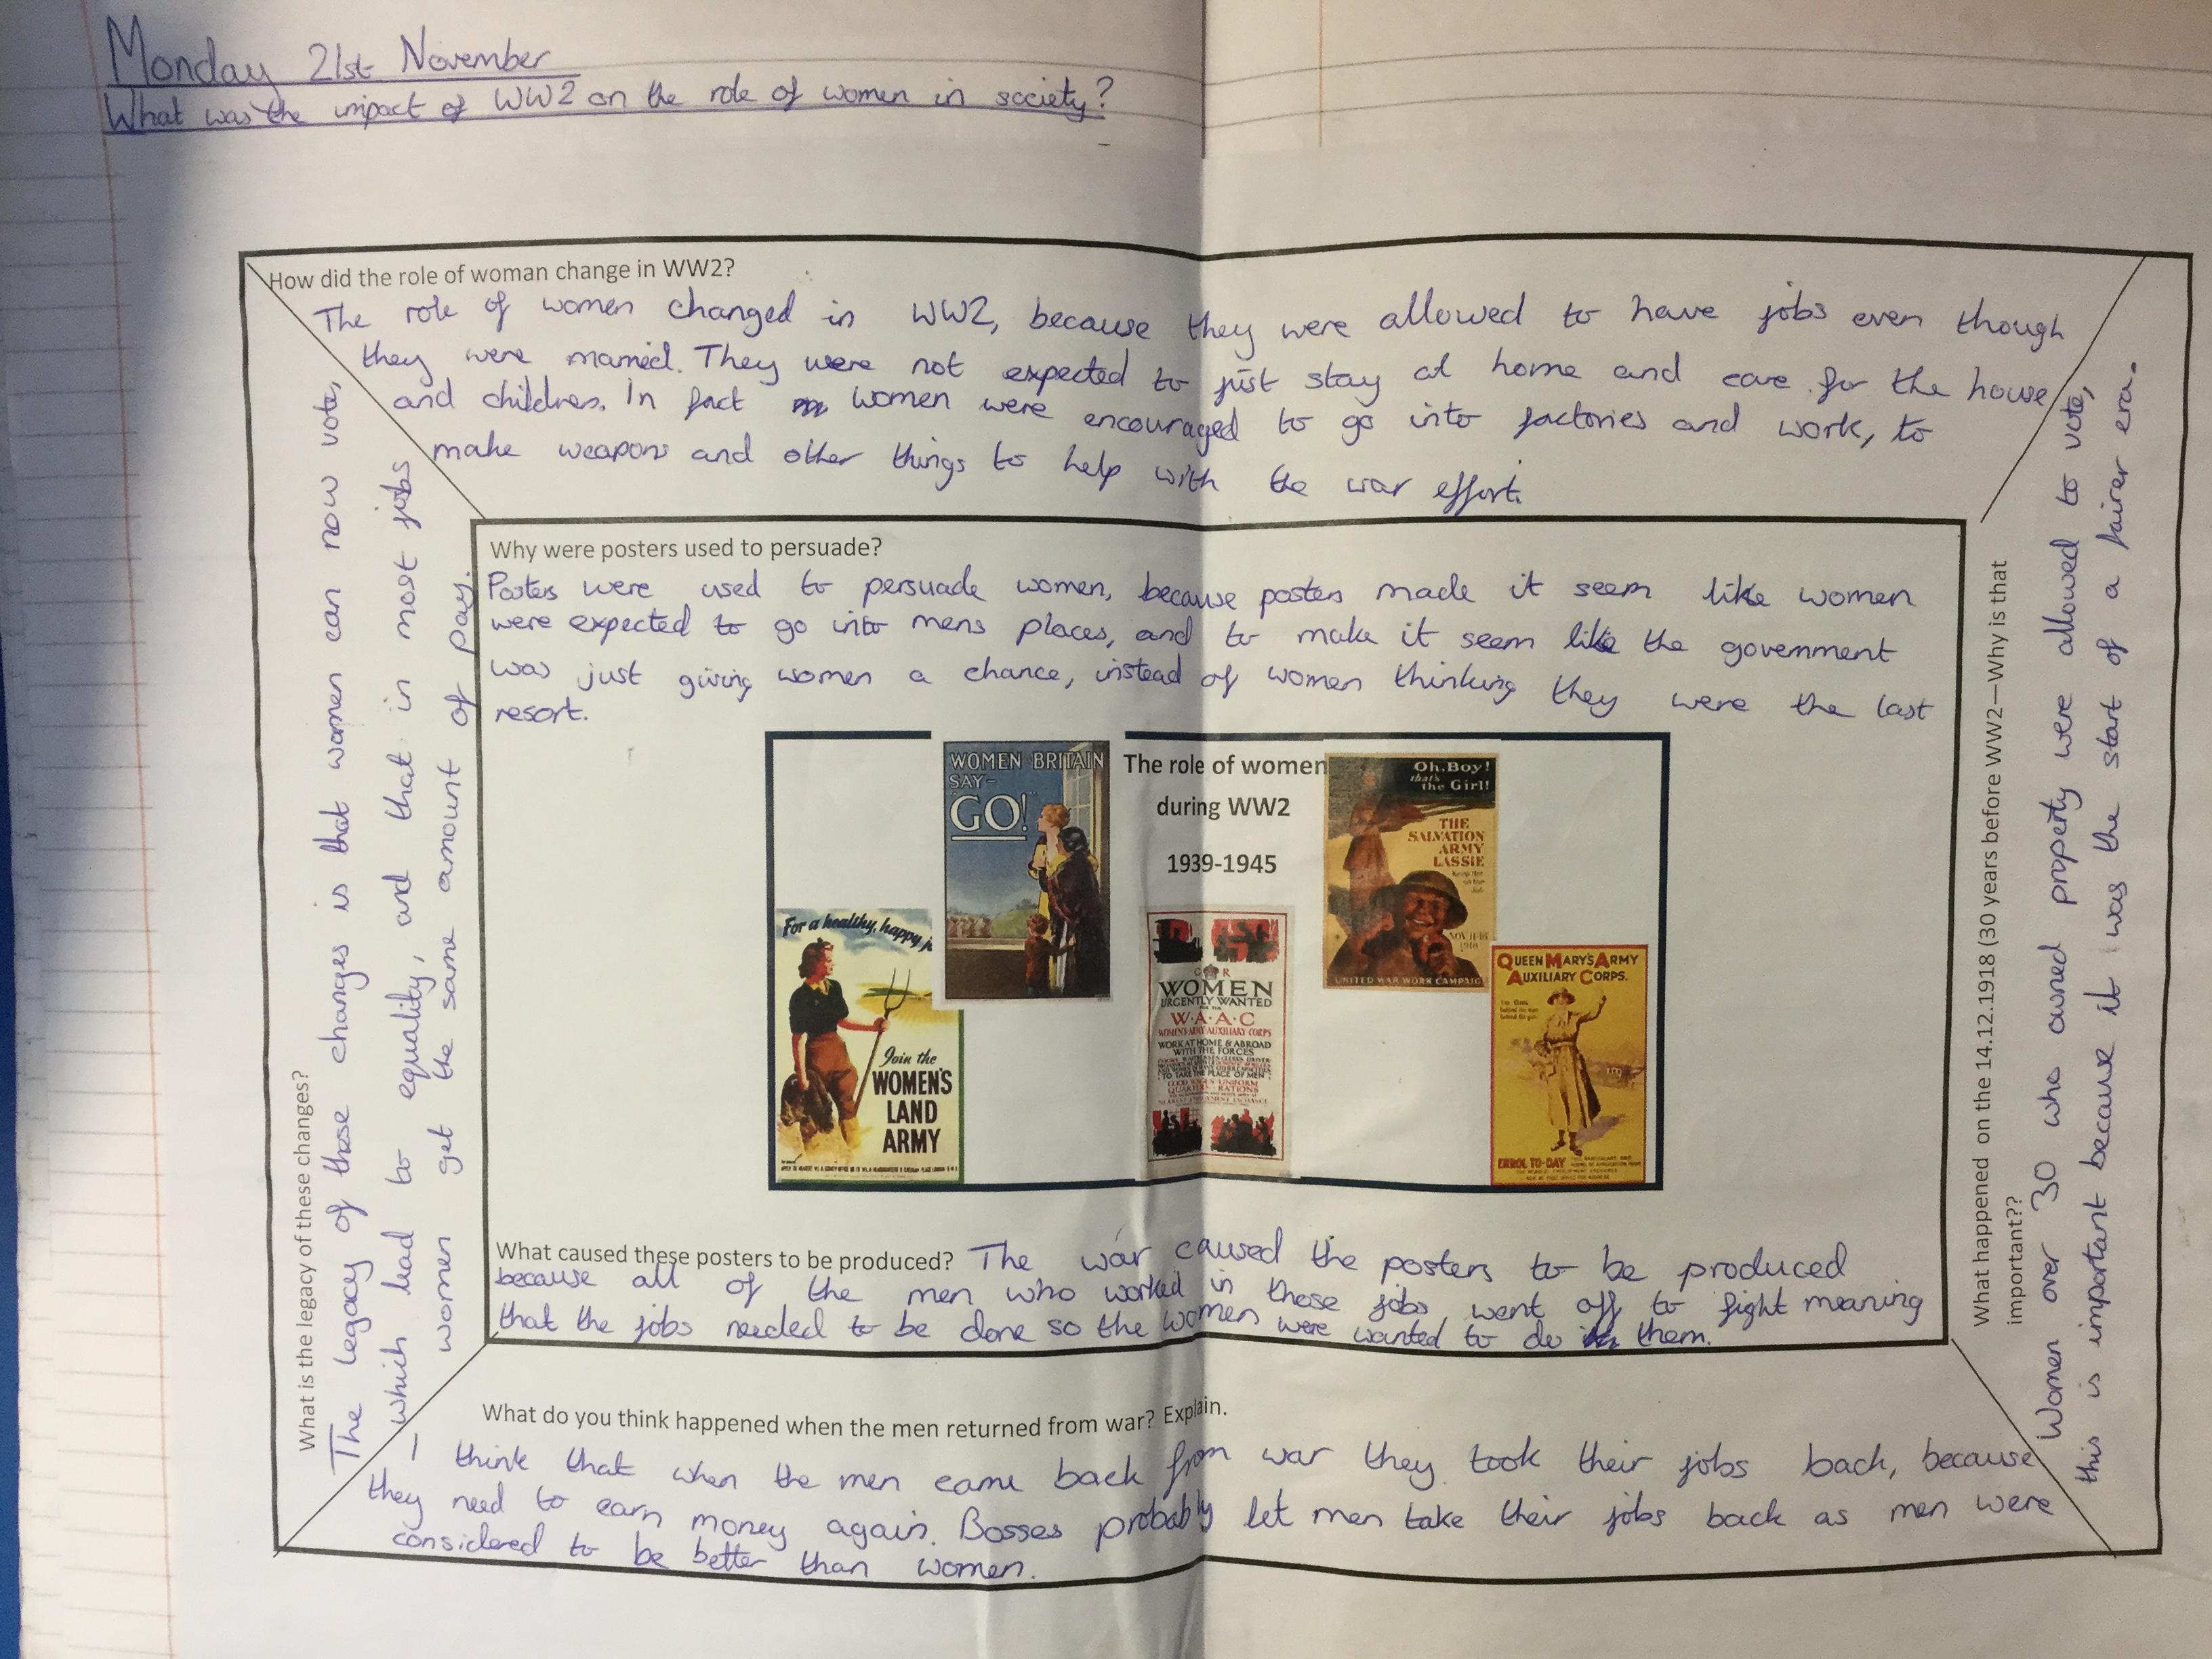 Monday 21st November
What was the impact of WW2 on the role of women in society?
How did the role of woman change in WW2?
The role of women changed in WW2, because they were allowed to have jobs even though
they were married. They were not expected to just stay at home and care for the house
and children. In fact women were encouraged to go into factories and work, to
make weapons and other things to help with the war effort.
What is the legacy of these changes?
The legacy of those changes is that women can now vote,
which lead to equality, and that in most jobs
women get the same amount of pay.
Why were posters used to persuade?
Posters were used to persuade women, because posters made it seem like women
were expected to go into mens places, and to make it seem like the government
was just giving women a chance, instead of women thinking they were the last
resort.
WOMEN BRITAIN
SAY-
"GO!"
The role of women
during WW2
1939-1945
Oh, Boy!
that's
the Girl!
THE
SALVATION
ARMY
LASSIE
NOV 11-18
1918
UNITED WAR WORK CAMPAIG
For a healthy, happy j
Join the
WOMEN'S
LAND
ARMY
G R
WOMEN
URGENTLY WANTED
W·A·A·C
WOMEN'S ARMY AUXILIARY CORPS
WORK AT HOME & ABROAD
WITH THE FORCES
TO TAKE THE PLACE OF MEN
QUEEN MARY'S ARMY
AUXILIARY CORPS.
ENROL TO-DAY
What caused these posters to be produced? The war caused the posters to be produced
because all of the men who worked in those jobs went off to fight meaning
that the jobs needed to be done so the women were wanted to do them.
What happened on the 14.12.1918 (30 years before WW2—Why is that
important??
Women over 30 who owned property were allowed to vote,
this is important because it was the start of a fairer era.
What do you think happened when the men returned from war? Explain.
I think that when the men came back from war they took their jobs back, because
they need to earn money again. Bosses probably let men take their jobs back as men were
considered to be better than women.